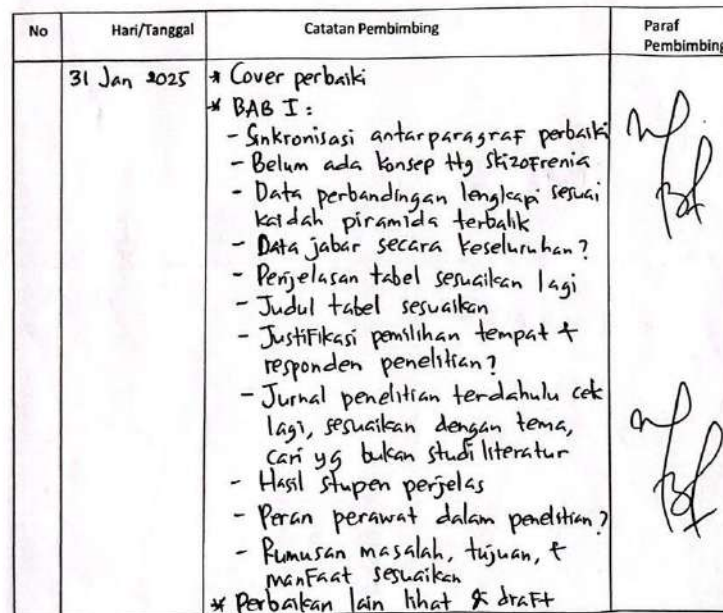 No Hari/Tanggal Catatan Pembimbing Paraf Pembimbing
31 Jan 2025 * Cover perbaiki
* BAB I :
- Sinkronisasi antarparagraf perbaiki
- Belum ada konsep ttg skizofrenia
- Data perbandingan lengkapi sesuai
kaidah piramida terbalik
- Data jabar secara keseluruhan?
- Penjelasan tabel sesuaikan lagi
- Judul tabel sesuaikan
- Justifikasi pemilihan tempat +
responden penelitian?
- Jurnal penelitian terdahulu cek
lagi, sesuaikan dengan tema,
cari yg bukan studi literatur
- Hasil stupen perjelas
- Peran perawat dalam penelitian?
- Rumusan masalah, tujuan, +
manfaat sesuaikan
* Perbaikan lain lihat draft